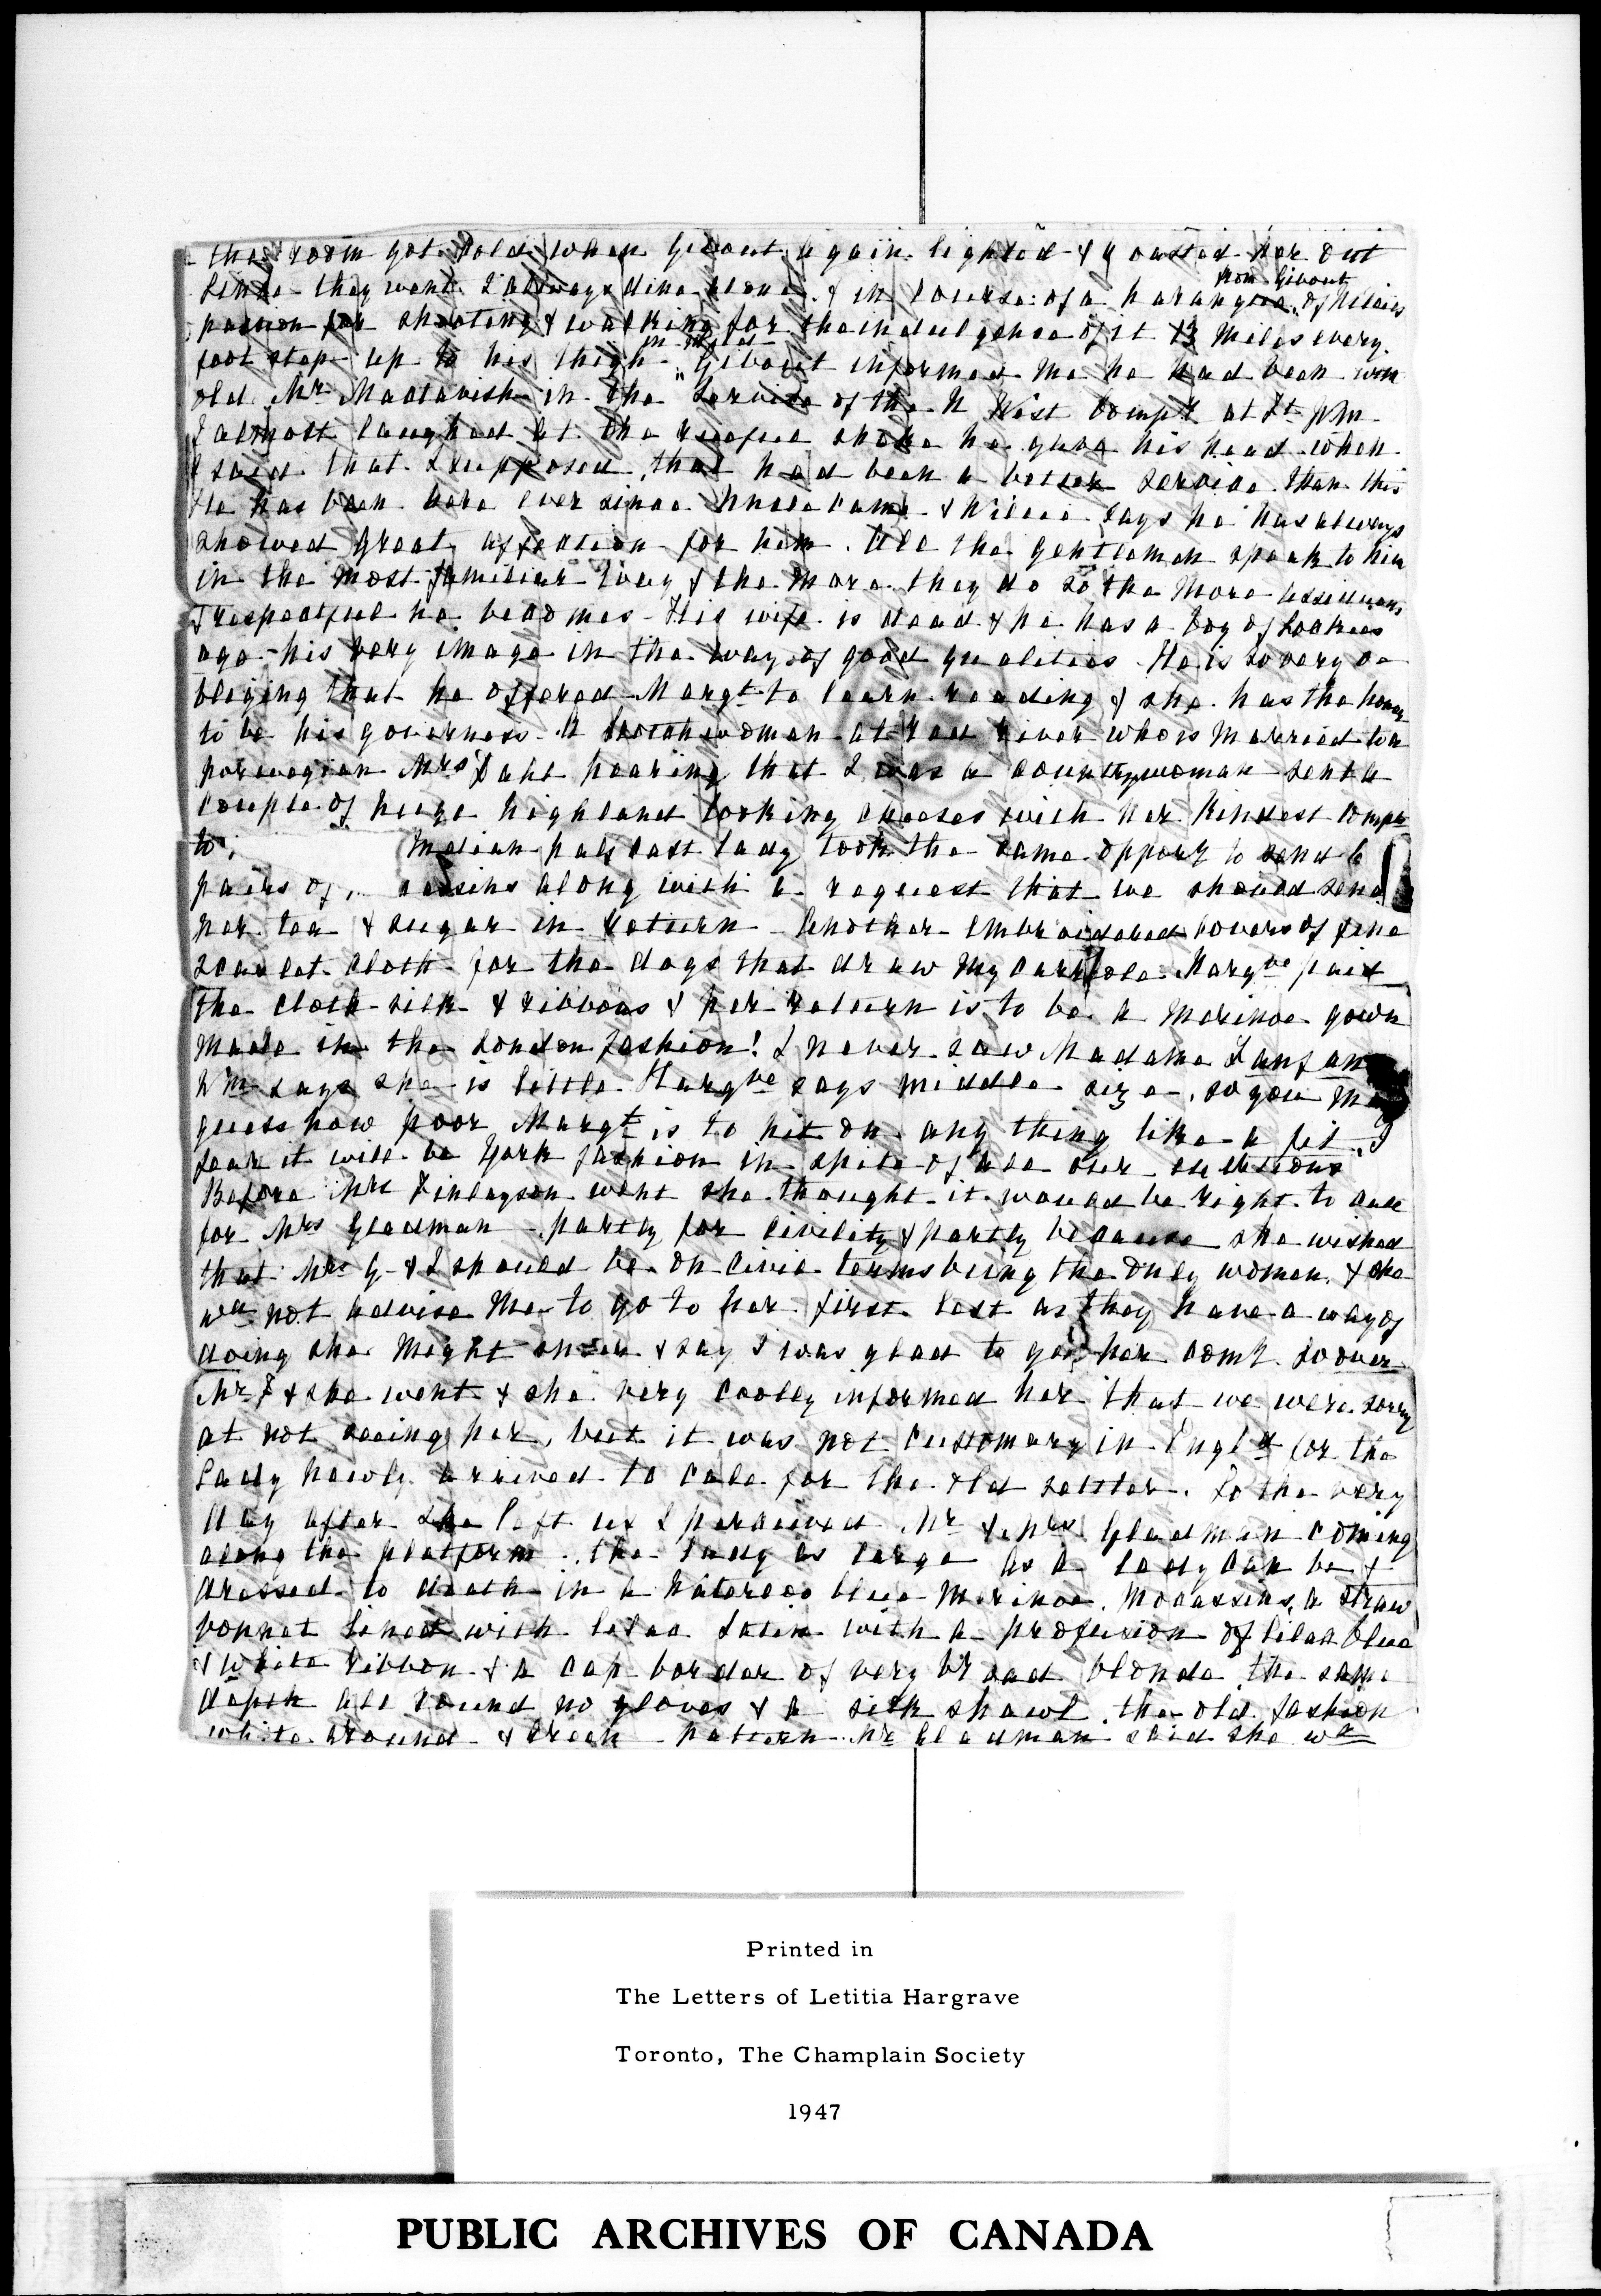 the room got cold when Gibout again lighted & roasted her out
Since they went I always dine alone & in course of a harangue from Gibout of Willie's
passion for shooting & walking for the indulgence of it 13 miles every
foot step up to his thigh in mud Gibout informed me he had been with
old Mr Mactavish in the service of the N West Compy at Ft Wm
I almost laughed at the rueful shake he gave his head when
I said that I supposed that had been a better service than this
He has been here ever since Uncle came & Willie says he has always
showed great affection for him. All the gentlemen speak to him
in the most familiar way & the more they do so the more assiduous
& respectful he becomes - His wife is dead & he has a boy of
age - his very image in the way of good qualities - He is so very o-
bliging that he offered Margt to learn reading & she has the honor
to be his governess - A Scotchwoman at Red River who is married to a
Norwegian Mrs Dahl hearing that I was a countrywoman sent a
couple of huge highland looking cheeses with her kindest Compts
to, Indian half cast lady took the same opporty to send 6
pairs of, assins along with a request that we should send
her tea & sugar in return - Another embroidered covers of fine
scarlet cloth for the dogs that draw my carriole Hargve paid
the cloth silk & ribbons & her return is to be a merinoe gown
made in the London fashion! I never saw Madame Lanfan
Wm says she is little. Hargve says middle size -, so you
guess how poor Margt is to hit on any thing like a fit. I
fear it will be York fashion in spite of all our exertions
Before Mrs Finlayson went she thought it would be right to call
for Mrs Gladman - partly for civility & partly because she wished
that Mrs G - & I should be on civil terms being the only women. & she
wd not advise me to go to her first lest as they have a way of
doing she might say I was glad to get her comy. So over
Mr F & she went & she very cooly informed her that we were sorry
at not seeing her, but it was not customary in Engld for the
lady newly arrived to call for the old settler. So the very
day after she left us I perceived Mr & Mrs Gladman coming
along the platform. the lady as large as a lady can be &
dressed to death in a Waterloo blue merinoe. Mocassins, a straw
bonnet lined with lilac satin with a profusion of lilac blue
& white ribbon & a cap border of very broad blonde the same
depth all round no gloves & a silk shawl. the old fashion
white ground & Greek pattern - Mr Gladman said she wd
Printed in
The Letters of Letitia Hargrave
Toronto, The Champlain Society
1947
PUBLIC ARCHIVES OF CANADA